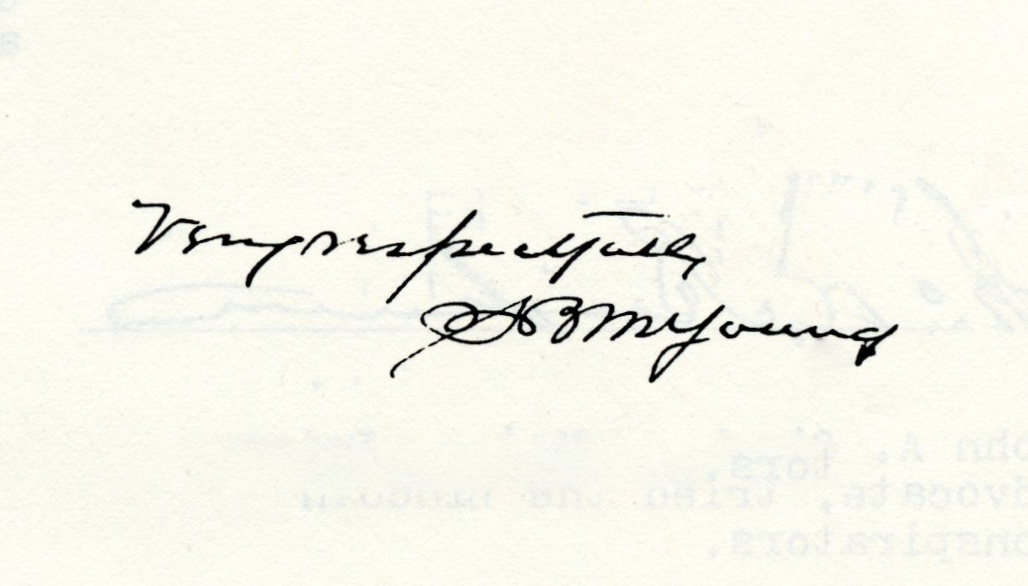 Very respectfully
S B M Young